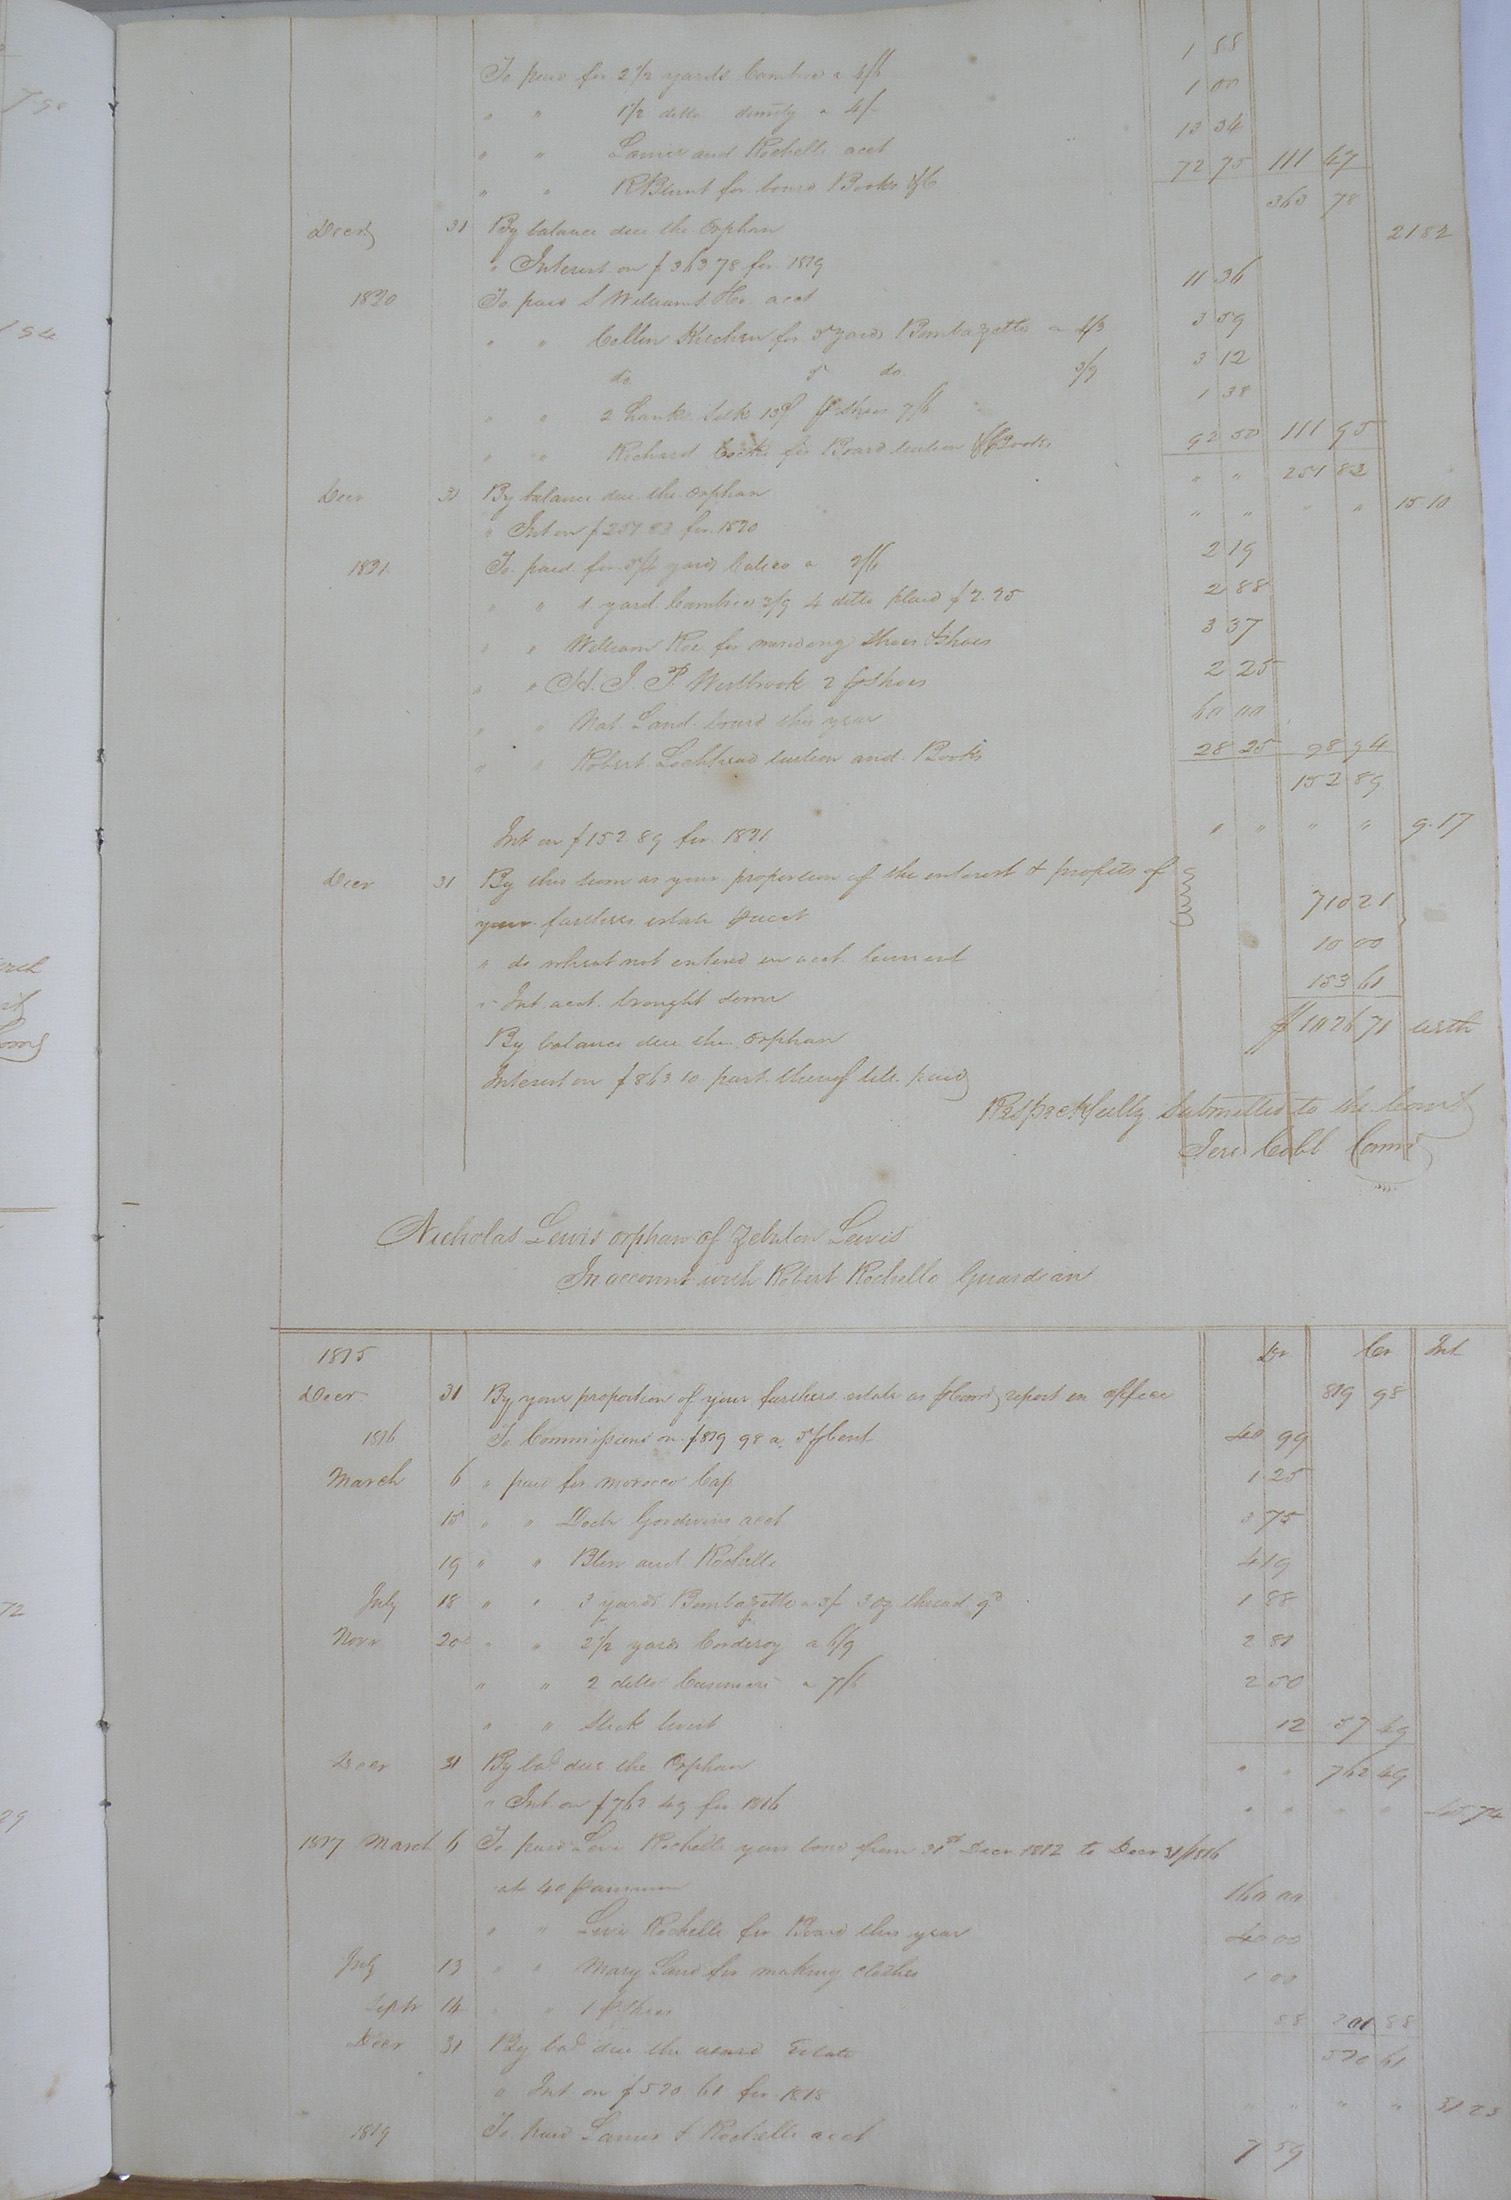 To paid for 2 1/2 yards Cambric a 4/6 1 88
" " 1 1/2 ditto dimity a 4/- 1 00
" " Lanier and Rochelle acct 13 34
" " R Blunt for board Books &c 72 75 111 47
Decr 31 By balance due the Orphan 363 78
" Interest on $363 78 for 1819 21 82
1820 To paid S Williams & Co acct 11 36
" " Collin Kitchen for 5 yards Bombazette a 4/3 3 59
do 5 do 3/9 3 12
" " 2 hanks Silk 13d pr shoes 7/6 1 38
" " Richard Cocke for Board tuition & Books 92 50 111 95
Decr 31 By balance due the orphan " " 251 83
" Int on $251 83 for 1820 " " " " 15 10
1821 To paid for 5 1/4 yards Calico a 2/6 2 19
" " 1 yard Cambric 3/9 4 ditto plaid $2.25 2 88
" " William Roe for mending Shoes & Shoes 3 37
" " H. J. P. Westbrook 2 pr Shoes 2 25
" " Nat. Land board this year 60 00
" " Robert Lochhead tuition and Books 28 25 98 94
152 89
Int on $152 89 for 1821 " " " " 9.17
Decr 31 By this sum as your proportion of the interest & profits of
your fathers estate pr acct 710 21
" do wheat not entered in acct current 10 00
" Int acct brought down 153 61
By balance due the orphan $1026 71 with
Interest on $863 10 part thereof till paid
Respectfully Submitted to the Court
Jere Cobb Comr
Nicholas Lewis orphan of Zebulon Lewis
In account with Robert Rochelle Guardian
1815 Dr Cr Int
Decr 31 By your proportion of your fathers estate as pr Comrs report in office 819 98
1816 To Commissions on $819 98 a 5 pr Cent 40 99
March 6 " paid for morocco Cap 1 25
15 " " Doctr Goodwins acct 3 75
19 " " Blow and Rochelle 4 19
July 18 " " 3 yards Bombazette a 3/- 3 oz thread 9d 1 88
Novr 20 " " 2 1/2 yards Corderoy a 6/9 2 81
" " 2 ditto Casimere a 7/6 2 50
" " Stick twist 12 57 49
Decr 31 By bal due the Orphan " " 762 49
" Int on $762 49 for 1816 " " " " 45 74
1817 March 6 To paid Levi Rochelle your board from 31st Decr 1812 to Decr 31 1816
at 40 pr annum 160 00
" " Levi Rochelle for Board this year 40 00
July 13 " " Mary Land for making clothes 1 00
Septr 14 " " 1 pr Shoes 88 201 88
Decr 31 By bal due the ward Estate 520 61
" Int on $520 61 for 1818 " " " " 31 23
1819 To paid Lanier & Rochelle acct 7 59